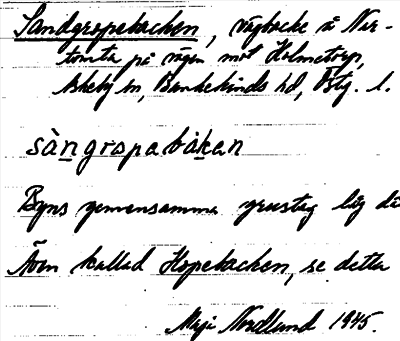 Sandgropebacken, vägbacke å Ner-
tomta på vägen mot Holmetorp,
Askeby sn, Bankekinds hd, Östg. l.
sàngropabákan
Byns gemensamma grustag låg
Även kallad Hopebacken, se detta
Maj Nordlund 1945.